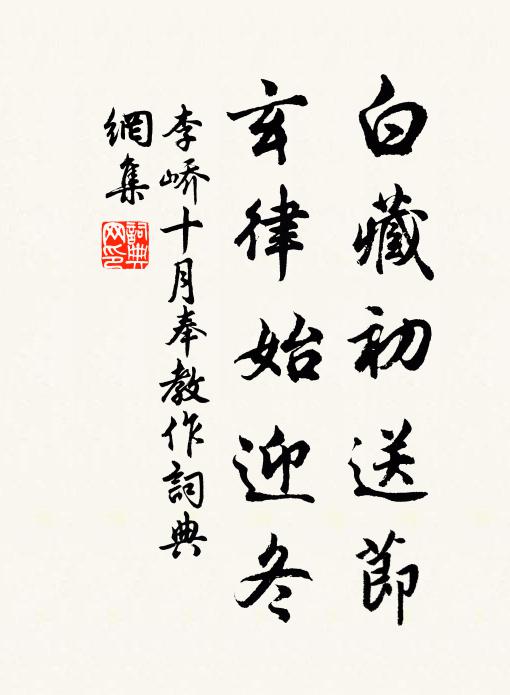 白藏初送節
玄律始迎冬
李嶠十月奉教作詞典
網集
詞典
网印